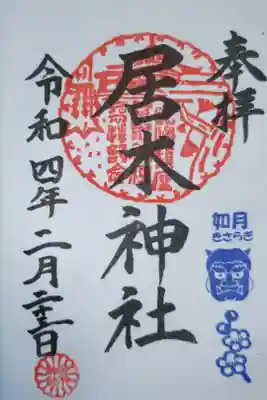 奉拝
居木神社
令和四年二月二十三日
如月
きさらぎ